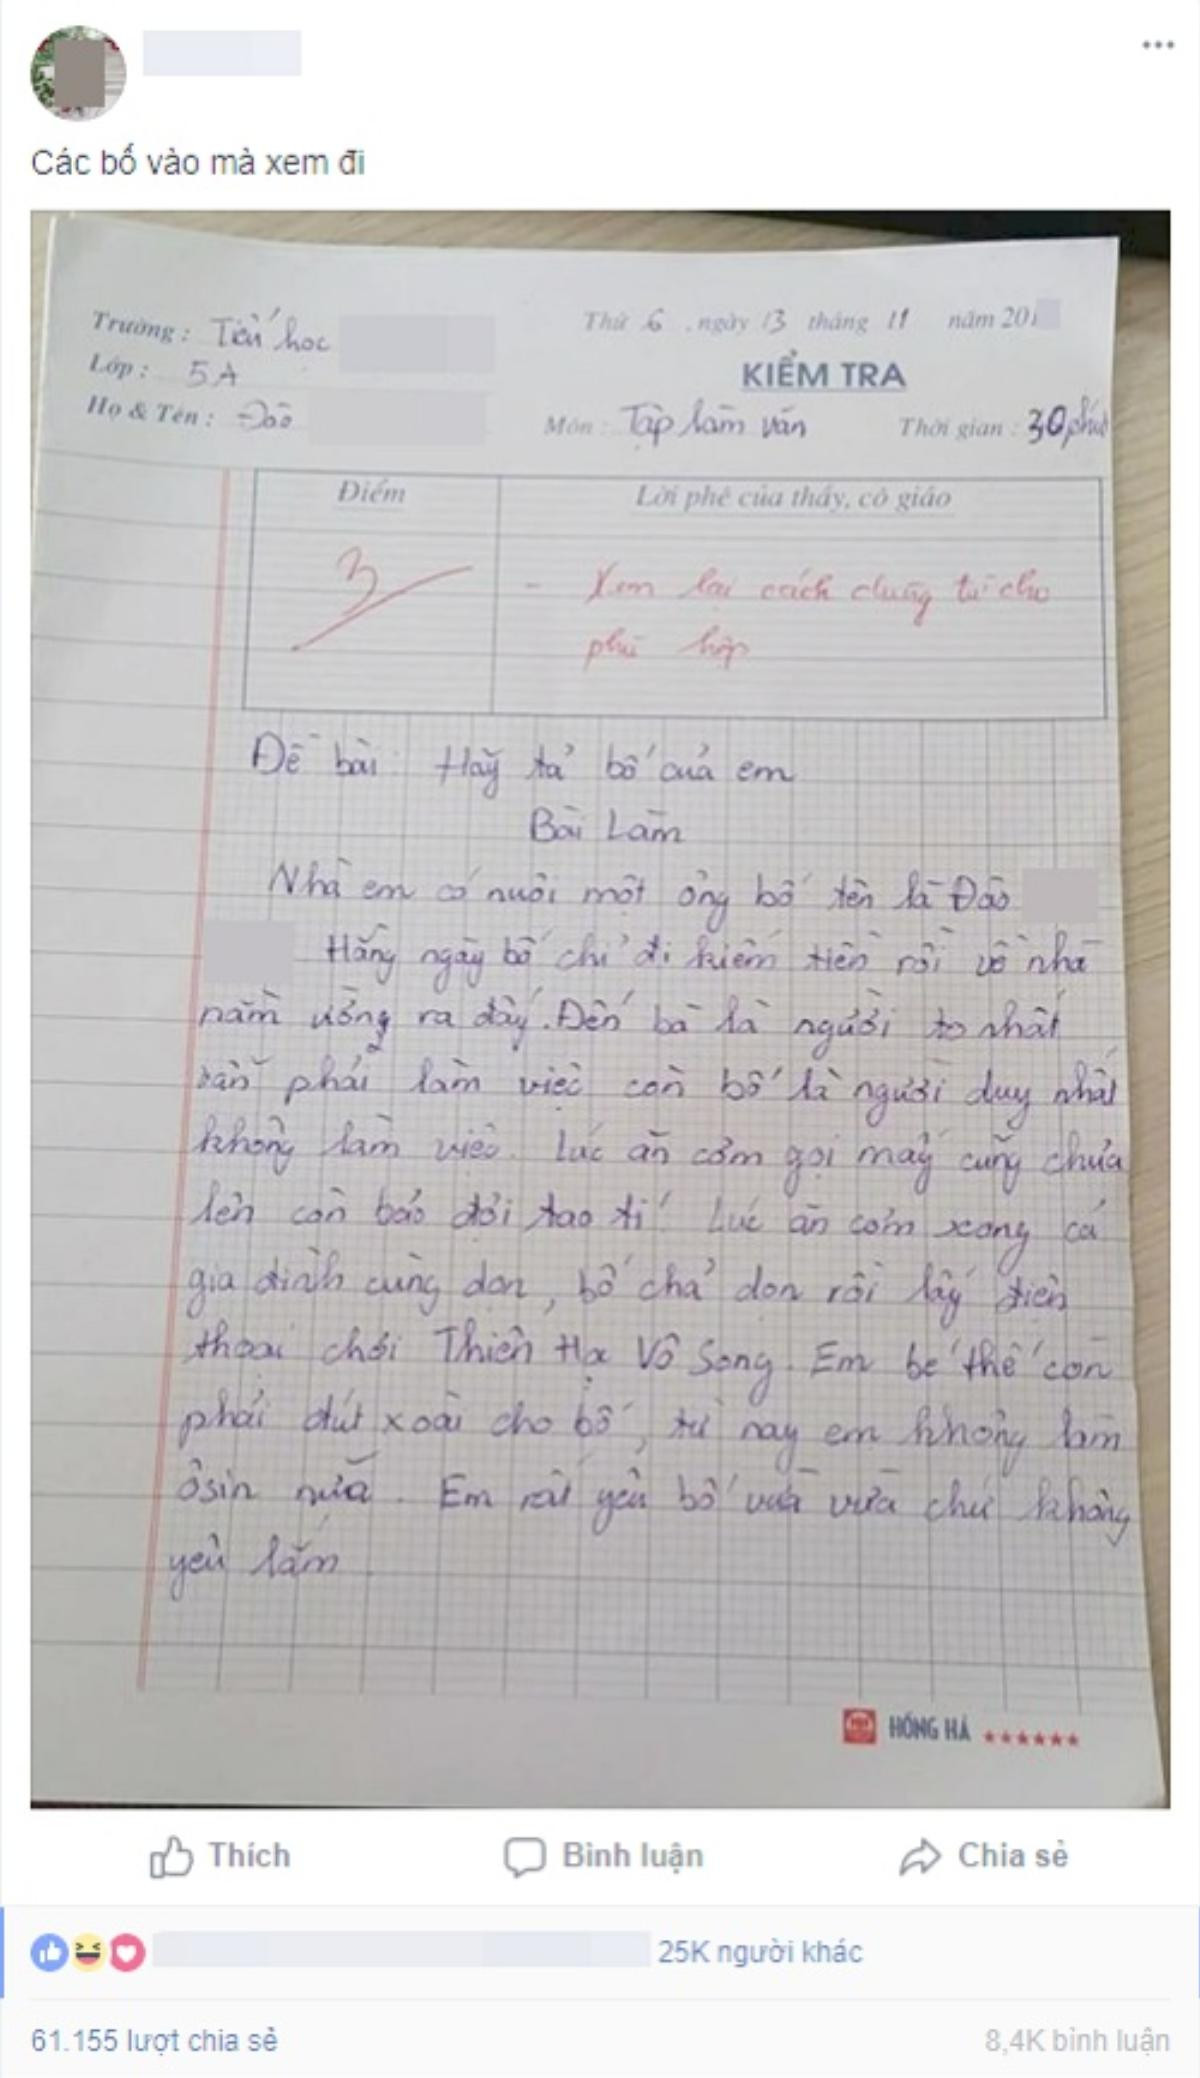 Các bố vào mà xem đi
Trường : Tiểu học
Thứ 6 , ngày 13 tháng 11 năm 201
Lớp : 5A
KIỂM TRA
Họ & Tên : Đào
Môn : Tập làm văn Thời gian : 30 phút
Điểm
Lời phê của thầy, cô giáo
3
- Xem lại cách dùng từ cho
phù hợp
Đề bài : Hãy tả bố của em
Bài Làm
Nhà em có nuôi một ông bố tên là Đào
Hằng ngày bố chỉ đi kiếm tiền rồi về nhà
nằm ưỡng ra đấy. Đến bà là người to nhất
vẫn phải làm việc còn bố là người duy nhất
không làm việc. Lúc ăn cơm gọi mấy cũng chưa
lên còn bảo đợi tao tí! Lúc ăn cơm xong cả
gia đình cùng dọn, bố chả dọn rồi lấy điện
thoại chơi Thiên Hạ Vô Song. Em bé thế còn
phải đút xoài cho bố, từ nay em không làm
ôsin nữa. Em rất yêu bố vừa vừa chứ không
yêu lắm
HỒNG HÀ
Thích Bình luận Chia sẻ
25K người khác
61.155 lượt chia sẻ 8,4K bình luận